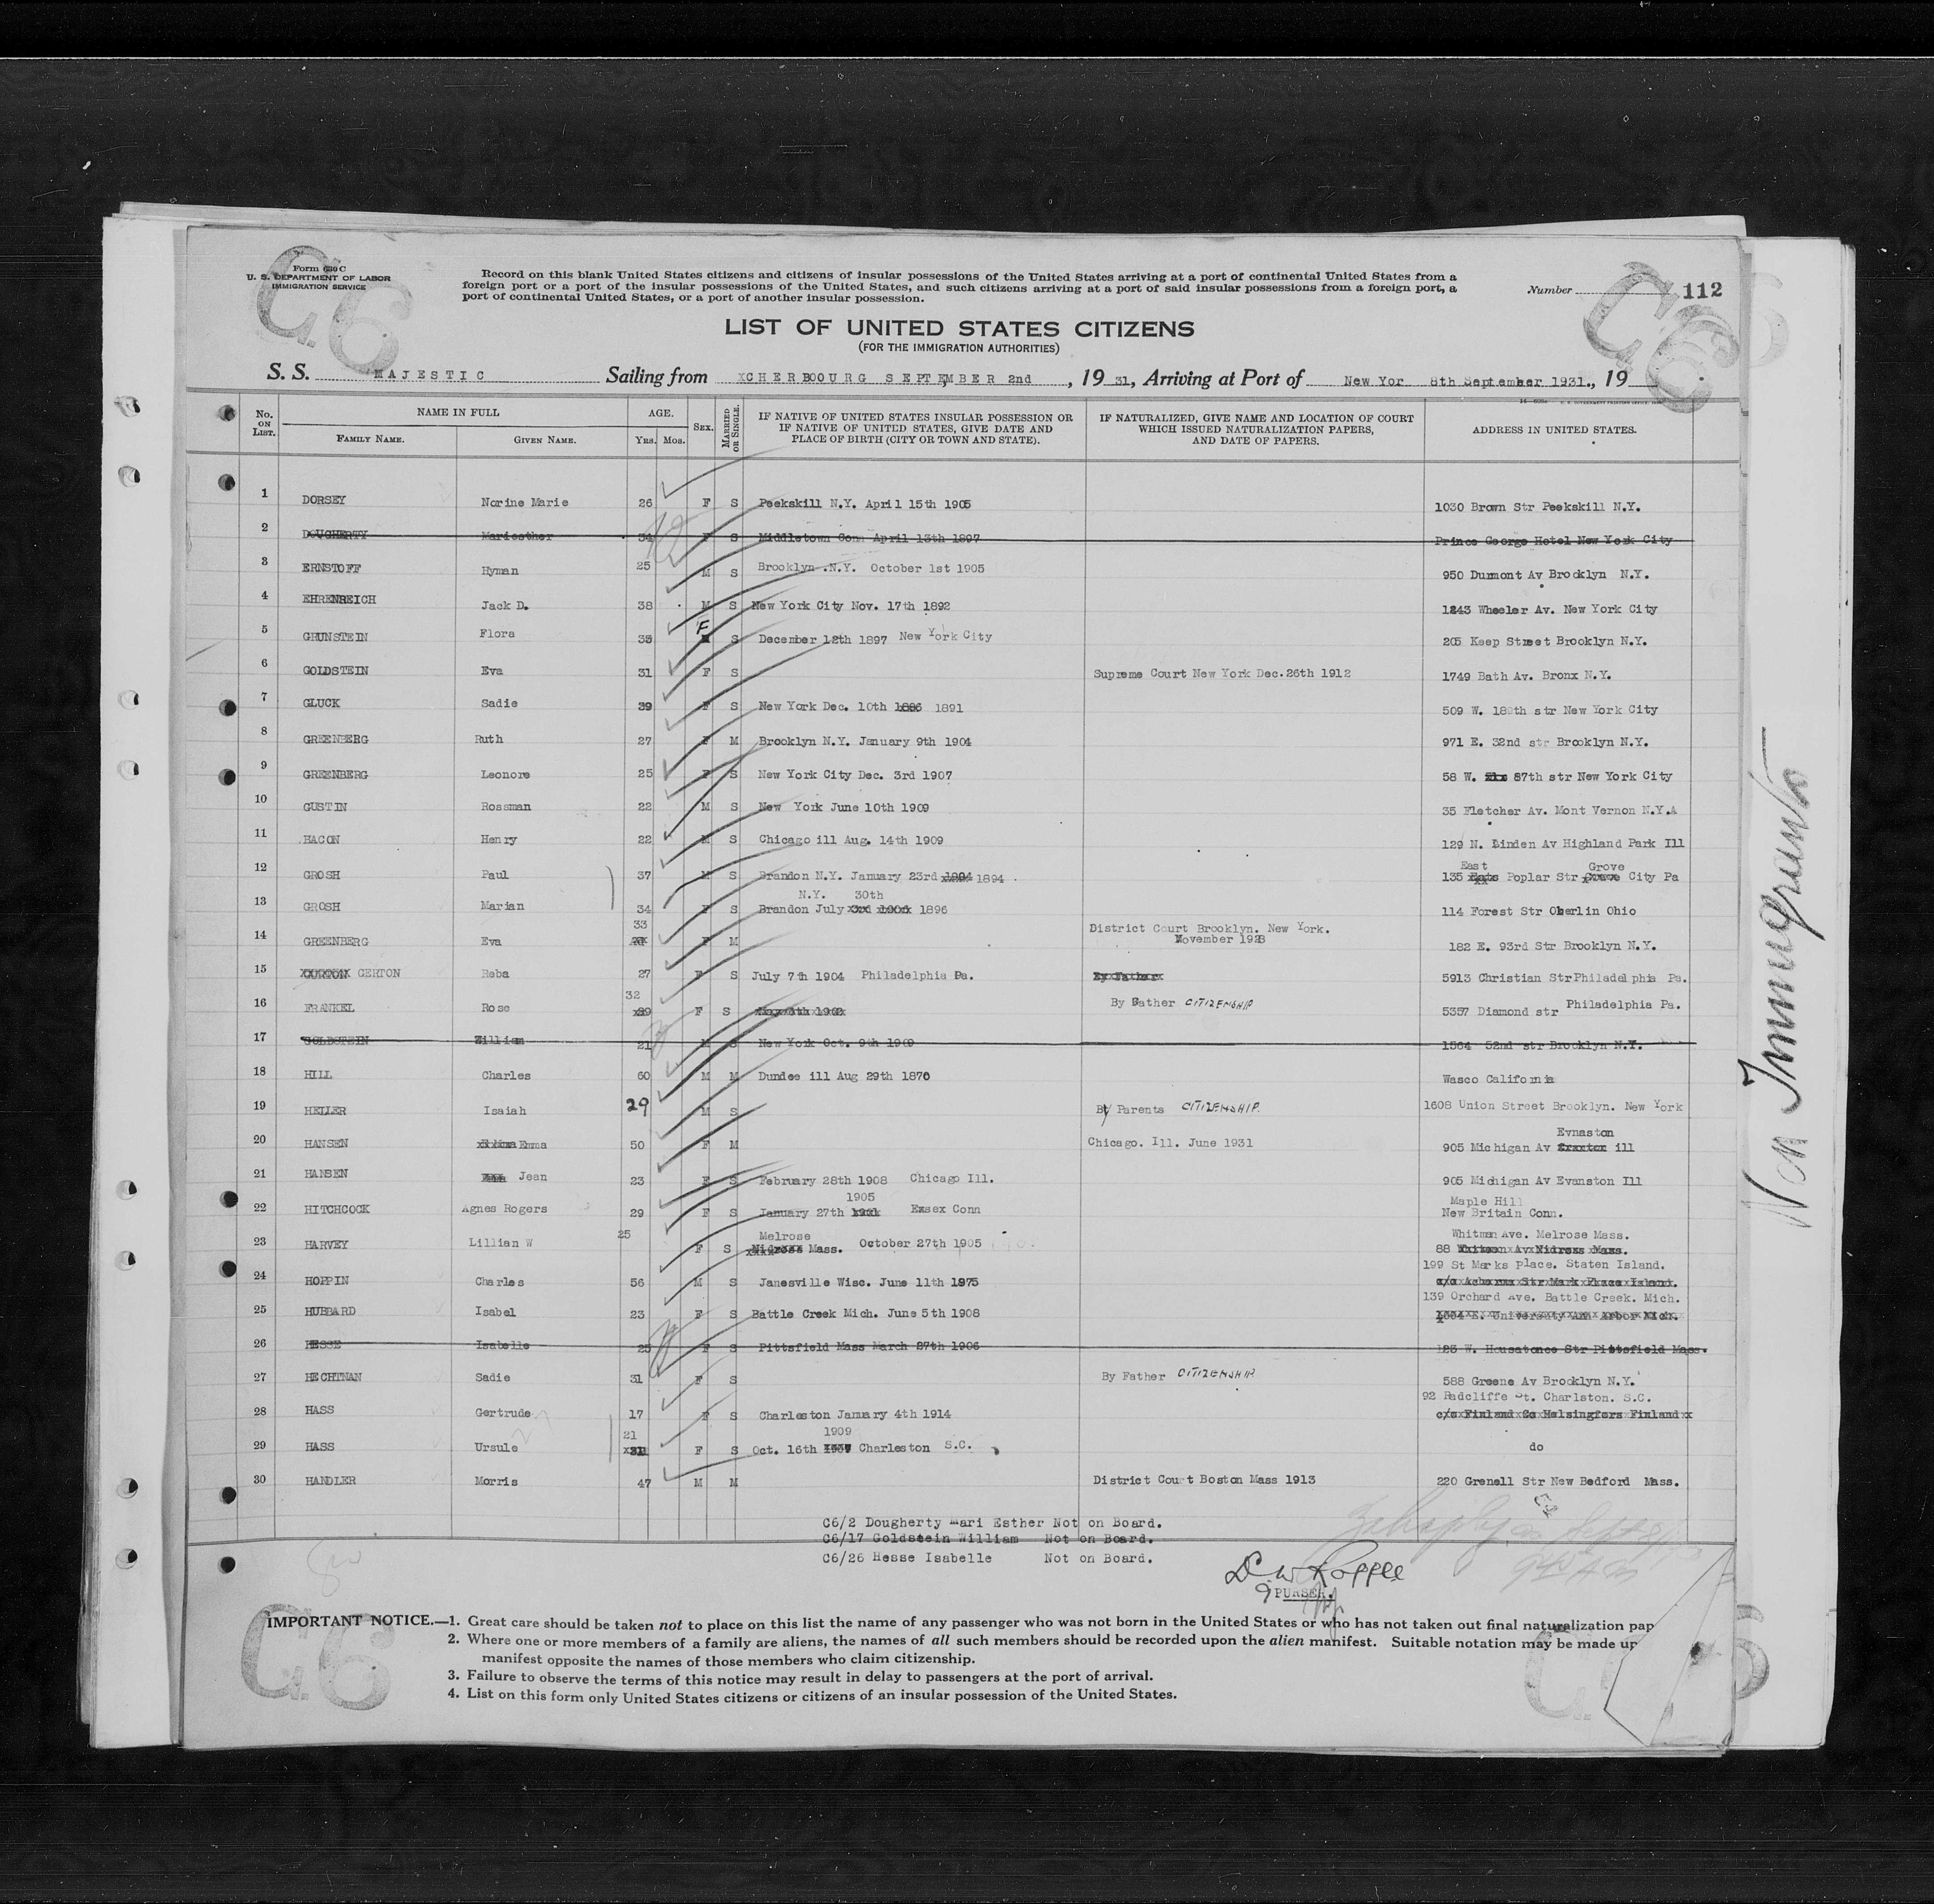 Form 630 C
U. S. DEPARTMENT OF LABOR
IMMIGRATION SERVICE
C6
Record on this blank United States citizens and citizens of insular possessions of the United States arriving at a port of continental United States from a
foreign port or a port of the insular possessions of the United States, and such citizens arriving at a port of said insular possessions from a foreign port, a
port of continental United States, or a port of another insular possession.
Number 112
C6
LIST OF UNITED STATES CITIZENS
(FOR THE IMMIGRATION AUTHORITIES)
S. S. MAJESTIC Sailing from XCHERBOOURG SEPTEMBER 2nd, 19 31, Arriving at Port of New Yor 8th September 1931., 19
No. ON LIST. NAME IN FULL AGE. SEX. MARRIED OR SINGLE. IF NATIVE OF UNITED STATES INSULAR POSSESSION OR IF NATIVE OF UNITED STATES, GIVE DATE AND PLACE OF BIRTH (CITY OR TOWN AND STATE). IF NATURALIZED, GIVE NAME AND LOCATION OF COURT WHICH ISSUED NATURALIZATION PAPERS, AND DATE OF PAPERS. ADDRESS IN UNITED STATES.
FAMILY NAME. GIVEN NAME. YRS. MOS.
1 DORSEY Norine Marie 26 F S Peekskill N.Y. April 15th 1905 1030 Brown Str Peekskill N.Y.
2 DOUGHERTY Mariesther 34 F S Middletown Conn April 13th 1897 Prince George Hotel New York City
3 ERNSTOFF Hyman 25 M S Brooklyn .N.Y. October 1st 1905 950 Dummont Av Brooklyn N.Y.
4 EHRENREICH Jack D. 38 M S New York City Nov. 17th 1892 1243 Wheeler Av. New York City
5 GRUNSTEIN Flora 33 F S December 12th 1897 New York City 205 Keep Street Brooklyn N.Y.
6 GOLDSTEIN Eva 31 F S Supreme Court New York Dec.26th 1912 1749 Bath Av. Bronx N.Y.
7 GLUCK Sadie 39 F S New York Dec. 10th 1886 1891 509 W. 189th str New York City
8 GREENBERG Ruth 27 F M Brooklyn N.Y. January 9th 1904 971 E. 32nd str Brooklyn N.Y.
9 GREENBERG Leonore 25 F S New York City Dec. 3rd 1907 58 W. 87th str New York City
10 GUSTIN Rossman 22 M S New York June 10th 1909 35 Fletcher Av. Mont Vernon N.Y.A
11 HACON Henry 22 M S Chicago ill Aug. 14th 1909 129 N. Linden Av Highland Park Ill
East Grove
12 GROSH Paul 37 M S Brandon N.Y. January 23rd 1904 1894 135 Poplar Str City Pa
N.Y. 30th
13 GROSH Marian 34 F S Brandon July 1896 114 Forest Str Oberlin Ohio
33 District Court Brooklyn. New York.
14 GREENBERG Eva F M November 1928 182 E. 93rd Str Brooklyn N.Y.
15 GERTON Reba 27 F S July 7th 1904 Philadelphia Pa. By Father 5913 Christian Str Philadelphia Pa.
32
16 FRANKEL Rose F S By Father CITIZENSHIP 5357 Diamond str Philadelphia Pa.
17 GOLDSTEIN William 21 M S New York Oct. 9th 1909 1564 52nd str Brooklyn N.Y.
18 HILL Charles 60 M M Dundee ill Aug 29th 1870 Wasco California
19 HELLER Isaiah 29 M S By Parents CITIZENSHIP. 1608 Union Street Brooklyn. New York
Evnaston
20 HANSEN Emma 50 F M Chicago. Ill. June 1931 905 Michigan Av ill
21 HANSEN Jean 23 F S February 28th 1908 Chicago Ill. 905 Michigan Av Evanston Ill
1905 Maple Hill
22 HITCHCOCK Agnes Rogers 29 F S January 27th Essex Conn New Britain Conn.
25 Melrose Whitman Ave. Melrose Mass.
23 HARVEY Lillian W F S Mass. October 27th 1905 88
199 St Marks Place. Staten Island.
24 HOPPIN Charles 56 M S Janesville Wisc. June 11th 1875
139 Orchard Ave. Battle Creek. Mich.
25 HUBBARD Isabel 23 F S Battle Creek Mich. June 5th 1908 E. University Ann Arbor Mich.
26 HESSE Isabelle 25 F S Pittsfield Mass March 27th 1906 123 W. Housatonce Str Pittsfield Mass.
27 HECHTNAN Sadie 31 F S By Father CITIZENSHIP 588 Greene Av Brooklyn N.Y.
92 Radcliffe St. Charlston. S.C.
28 HASS Gertrude 17 F S Charleston January 4th 1914 c/o Finland Co Helsingfors Finland
21 1909
29 HASS Ursule F S Oct. 16th Charleston S.C. do
30 HANDLER Morris 47 M M District Court Boston Mass 1913 220 Grenell Str New Bedford Mass.
C6/2 Dougherty Mari Esther Not on Board.
C6/17 Goldstein William Not on Board.
C6/26 Hesse Isabelle Not on Board.
PURSER.
Non Immigrants
IMPORTANT NOTICE.—1. Great care should be taken not to place on this list the name of any passenger who was not born in the United States or who has not taken out final naturalization pap
2. Where one or more members of a family are aliens, the names of all such members should be recorded upon the alien manifest. Suitable notation may be made up
manifest opposite the names of those members who claim citizenship.
3. Failure to observe the terms of this notice may result in delay to passengers at the port of arrival.
4. List on this form only United States citizens or citizens of an insular possession of the United States.
C6